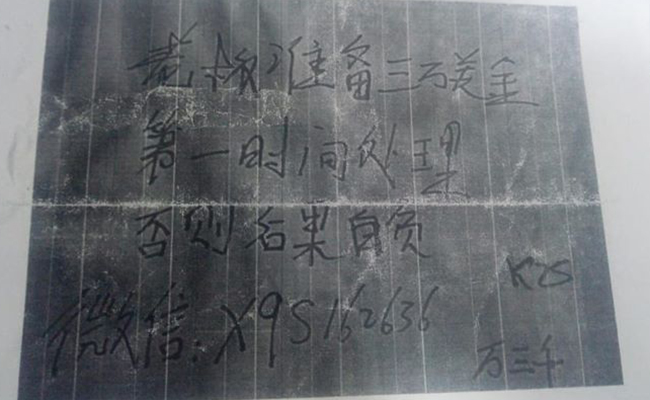 老板准备三万美金
第一时间处理
否则后果自负
K2S
微信:X9S162636
万三千